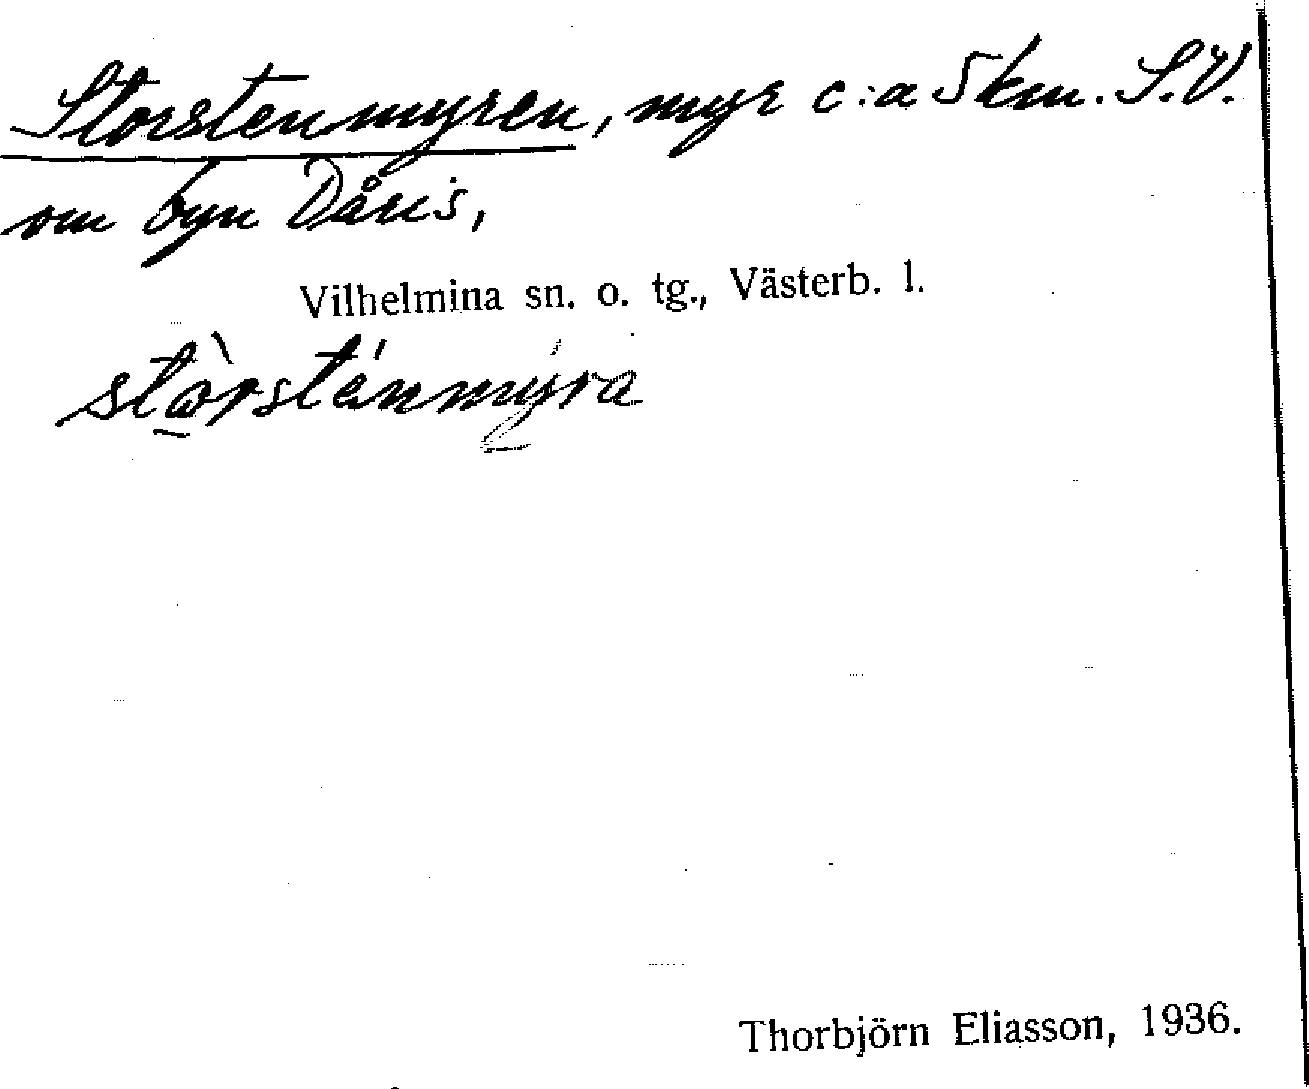 Storstenmyren, myr c:a 5 km. S.V.
om byn Dåris,
Vilhelmina sn. o. tg., Västerb. l.
stòrsténmýra
Thorbjörn Eliasson, 1936.